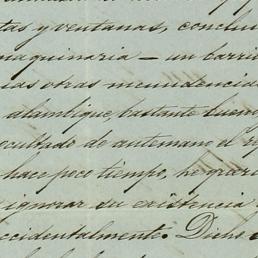 tas y ventanas, conclui
maquinaria — un carri
las otras menudencias
alambique, bastante buen
de antemano el
hace poco tiempo, he
ignorar su existencia
accidentalmente. Dicho